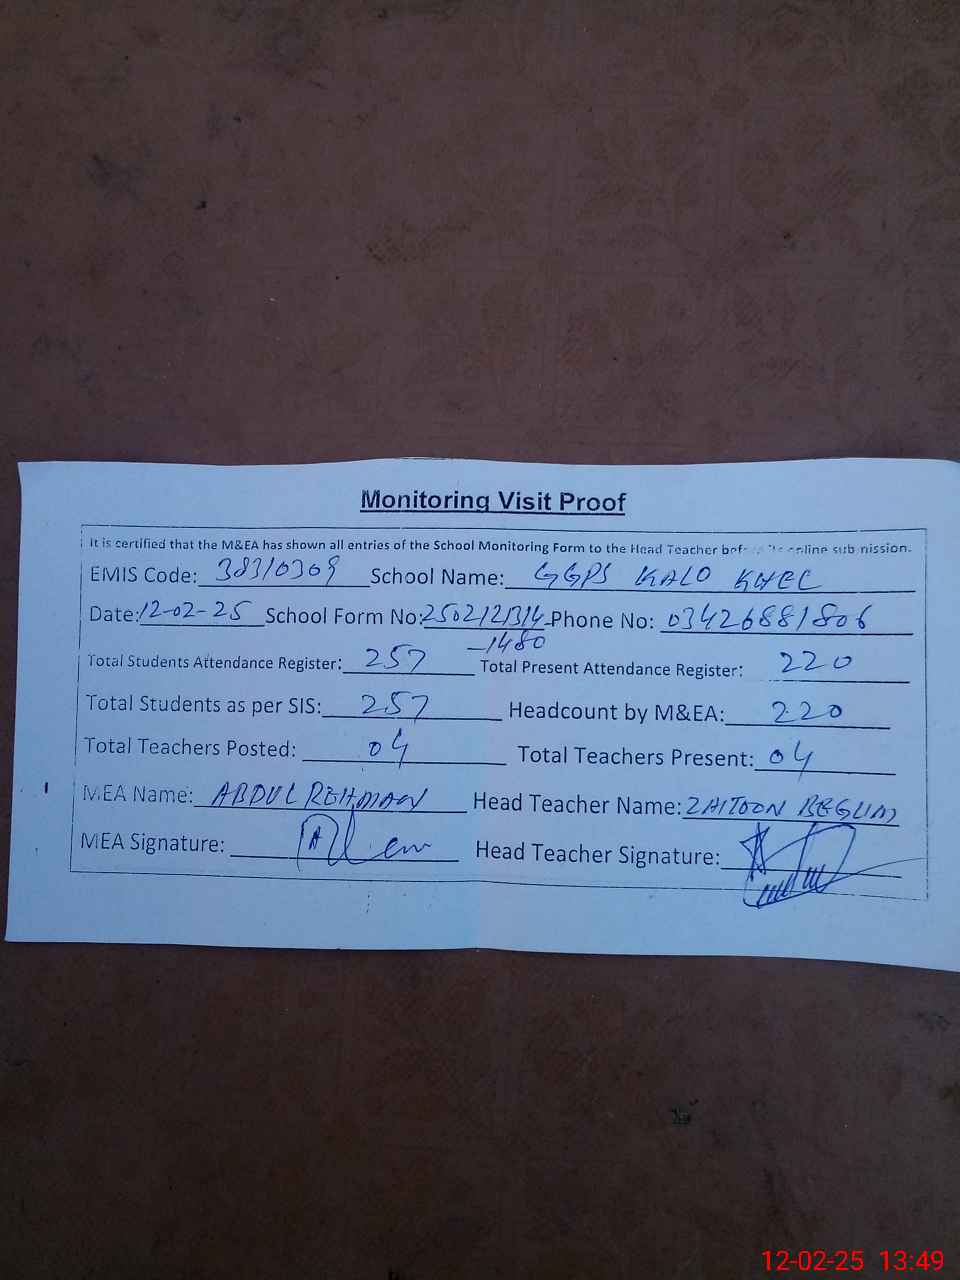 Monitoring Visit Proof
It is certified that the M&EA has shown all entries of the School Monitoring Form to the Head Teacher before its online submission.
EMIS Code: 38310309 School Name: GGPS KALO KHEL
Date: 12-02-25 School Form No: 2502121314 Phone No: 03426881806
-1480
Total Students Attendance Register: 257 Total Present Attendance Register: 220
Total Students as per SIS: 257 Headcount by M&EA: 220
Total Teachers Posted: 04 Total Teachers Present: 04
MEA Name: ABDUL REHMAN Head Teacher Name: ZAITOON BEGUM
MEA Signature: Head Teacher Signature:
12-02-25 13:49